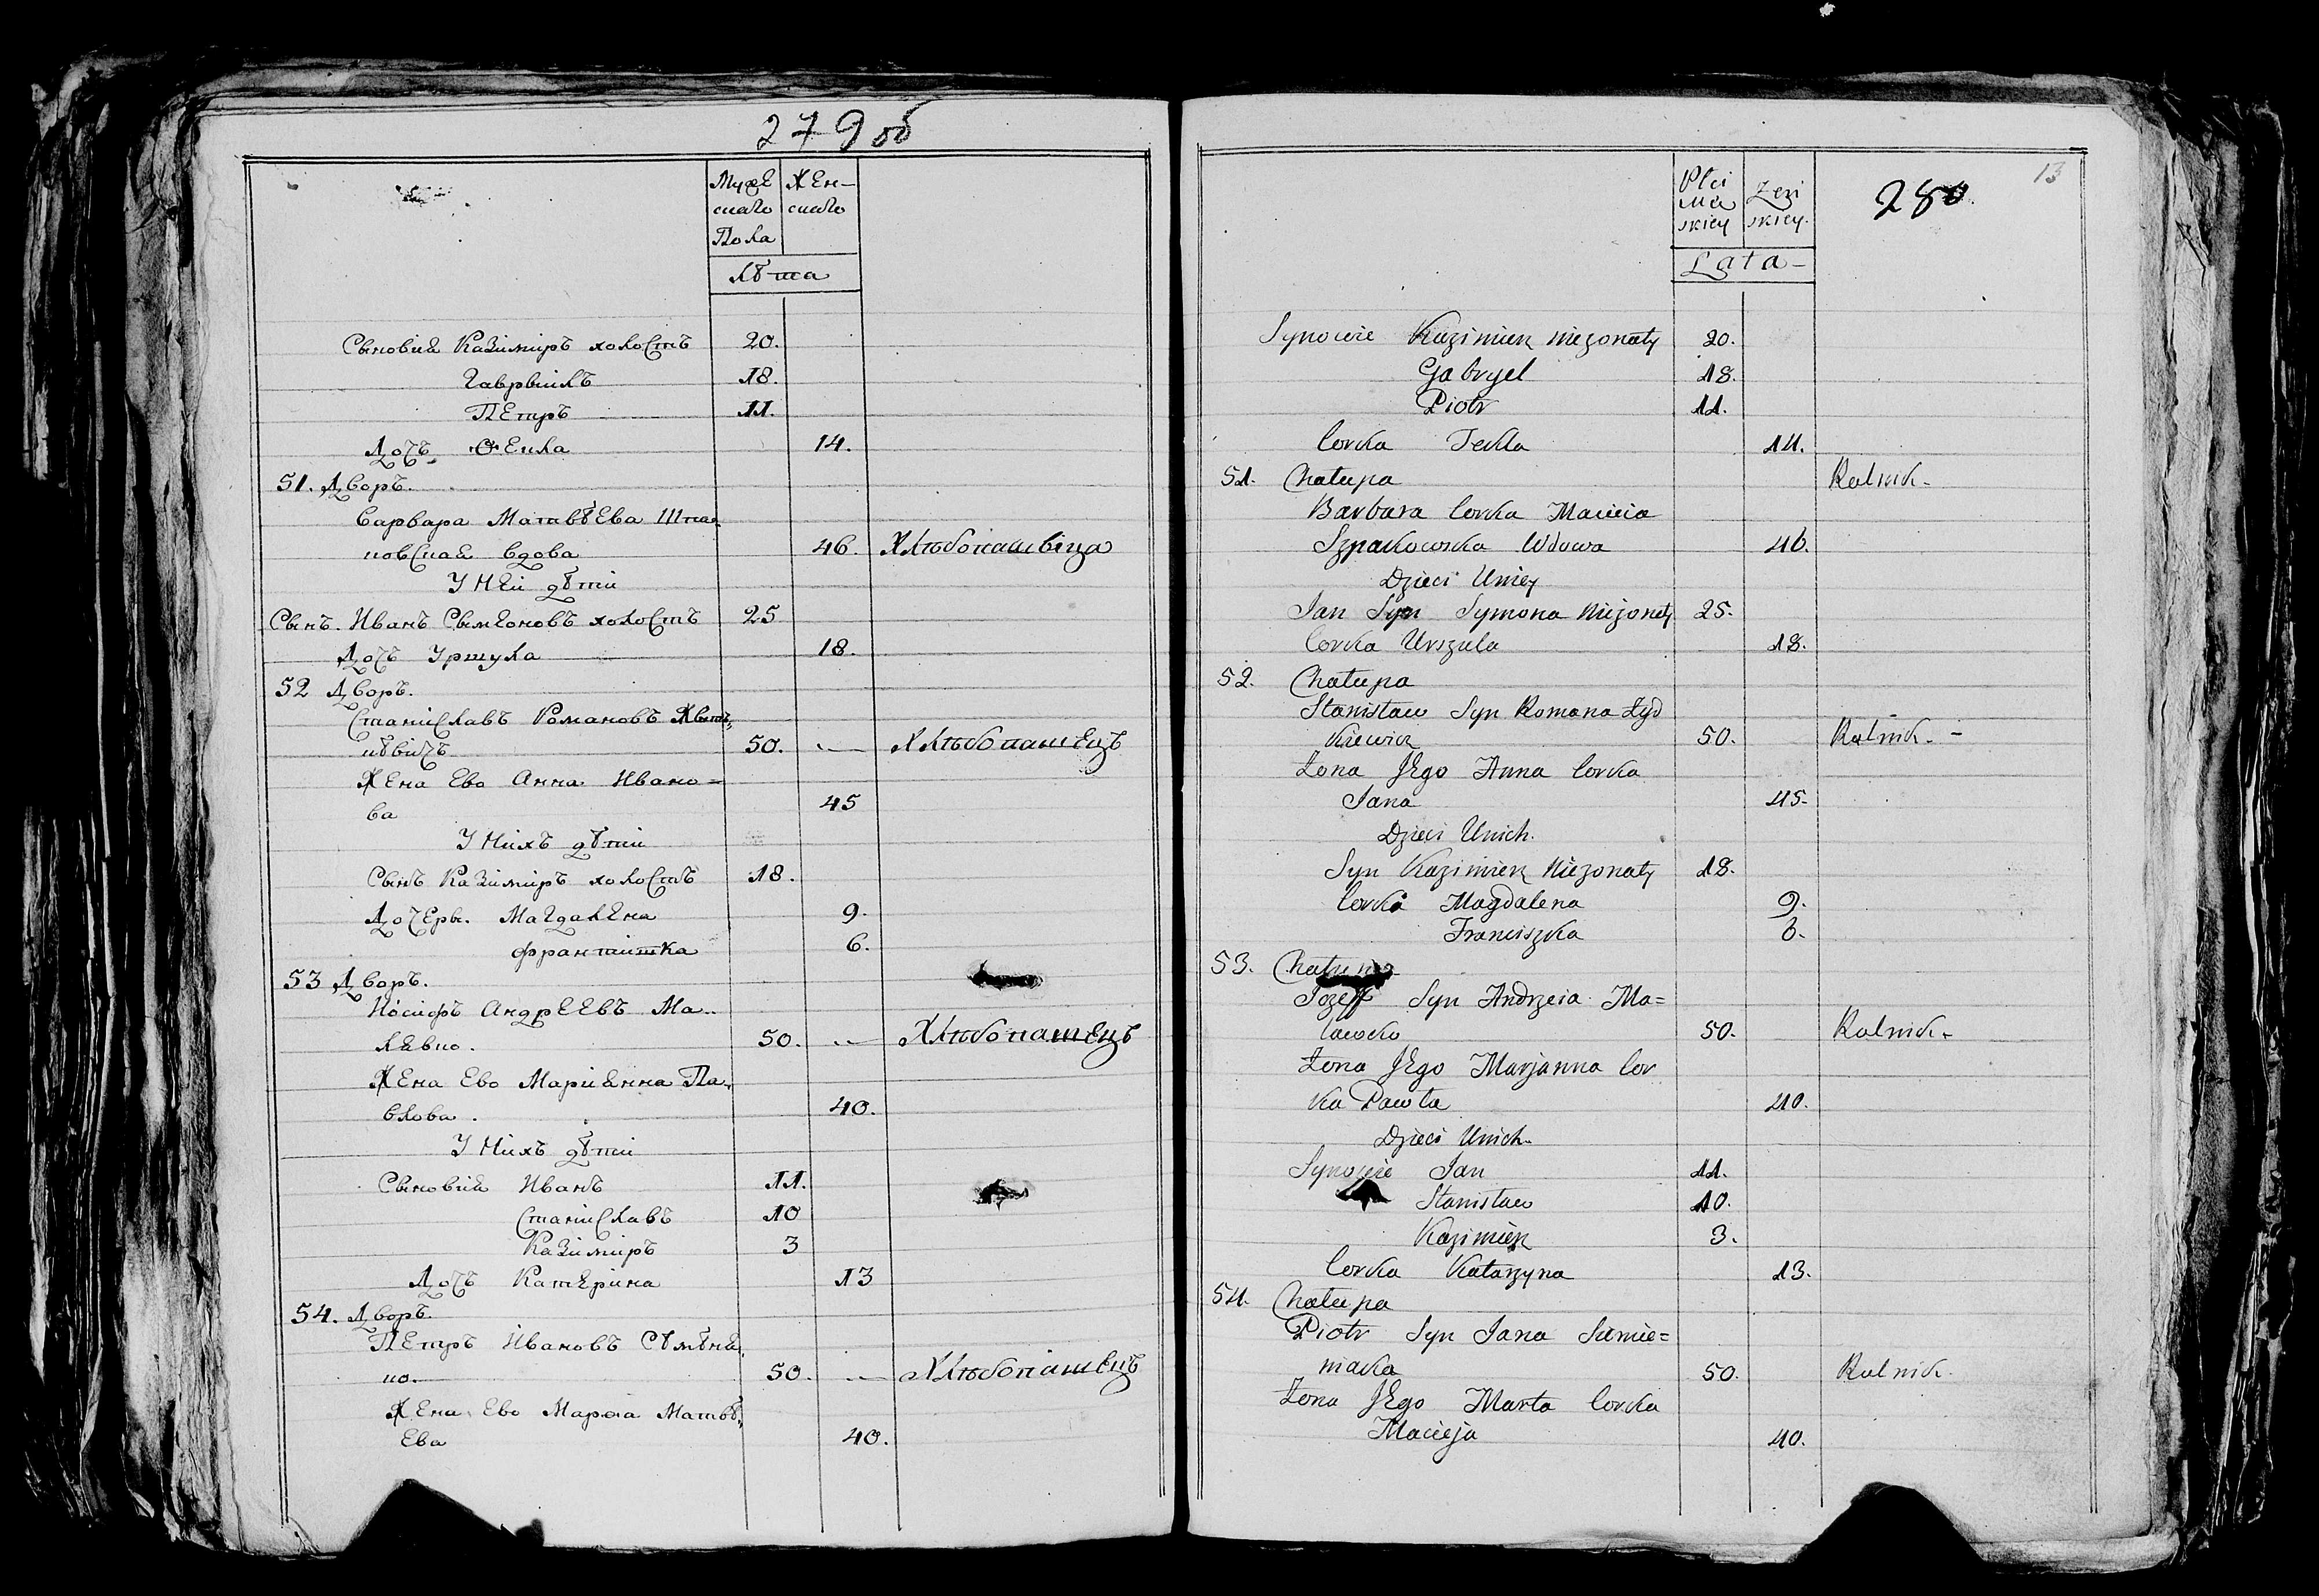 279 об
Муже Жен-
скаго скаго
Пола
лѣта
Сыновия Казимиръ холостъ 20.
Гаврыилъ 18.
Петръ 11.
Дочь Ѳекла 14.
51. Дворъ.
Варвара Матвѣева Шпа-
ковская вдова 46. Хлѣбопашвица
У Ней дѣти
Сынъ. Иванъ Сымеоновъ холостъ 25
Дочь Уршуля 18.
52 Дворъ.
Станиславъ Романовъ Жыт-
кѣвичъ 50. — Хлѣбопашецъ
Жена Ево Анна Ивано=
ва 45
У Нихъ дѣти
Сынъ Казимиръ холостъ 18.
Дочеры. Магдалена 9.
Франтишка 6.
53 Дворъ.
Иосифъ Андреевъ Ма-
левко. 50. — Хлѣбопашецъ
Жена Ево Мариянна Па-
влова. 40.
У Нихъ дѣти
Сыновия Иванъ 11.
Станиславъ 10
Казимиръ 3
Дочь Катерина 13
54. Дворъ.
Петръ Ивановъ Сѣмѣня
ко. 50. — Хлѣбопашецъ
Жена Ево Марѳа Матвѣ-
Ева 40.
13
280.
Płci Zeń
Mę skiey.
skiey
Lata-
Synowie Kazimierz niezonaty 20.
Gabryel 18.
Piotr 11.
Corka Tekla 14.
51. Chałupa Rolnik-
Barbara Corka Macieia
Szpakowska Wdowa 46.
Dzieci Uniey
Jan Syn Symona Niezonaty 25.
Corka Urszula 18.
52. Chałupa
Stanisław Syn Romana Żyd
kiewicz 50. Rolnik.-
Zona Jego Anna Corka
Jana 45.
Dzieci Unich.
Syn Kazimierz Niezonaty 18.
Corka Magdalena 9.
Franciszka 6.
53. Chałupa
Jozeff Syn Andrzeia Ma=
lawko 50. Rolnik-
Zona Jego Marjanna Cor
ka Pawła 40.
Dzieci Unich.
Synowie Jan 11.
Stanisław 10.
Kazimierz 3.
Corka Katarzyna 13.
54. Chałupa
Piotr Syn Jana Simie=
niaka 50. Rolnik.
Zona Jego Marta Corka
Macieja 40.